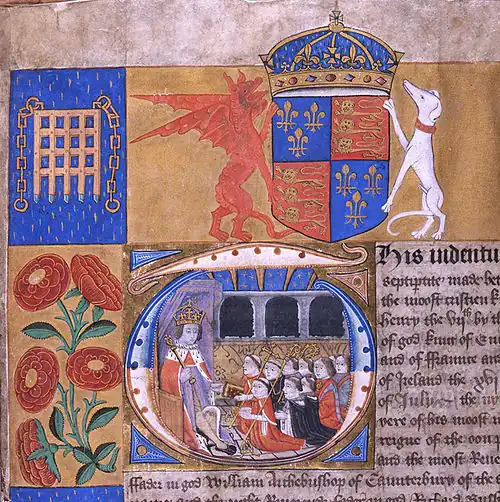 This indentu
septiptite made bet
the moost cristen k
Henry the vijth by th
of god king of En
and of ffraunce and
of Ireland the
of Iulye the ny
yere of his moost n
reigne of the oon
and the moost Reue
ffader in god William Archebisshop of Caunterbury of the